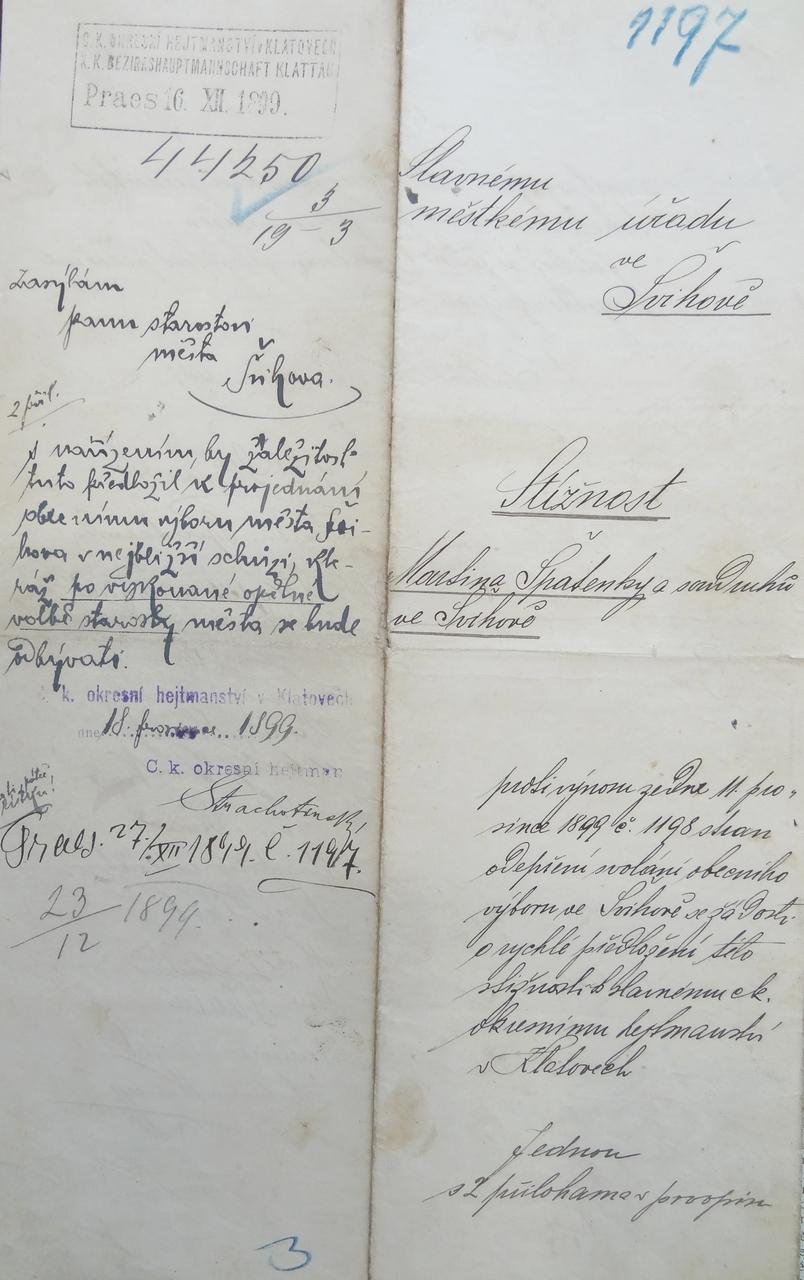 C. K. OKRESNÍ HEJTMANSTVÍ V KLATOVECH
K. K. BEZIRKSHAUPTMANNSCHAFT KLATTAU
Praes 16. XII. 1899.
44250
3
19 - 3
Zasýlám
panu starostovi
města
Švihova.
2 příl.
s nařízením, by záležitost
tuto předložil k projednání
obecnímu výboru města Švi-
hova v nejbližší schůzi, kte-
ráž po vykonané opětné
volbě starosty města se bude
odbývati.
C. k. okresní hejtmanství v Klatovech
dne 18. prosince 1899.
C. k. okresní hejtman
Strachotinský
Praes. 27./XII 1899. č. 1197.
23/12 1899.
3
1197
Slavnému
městkému úřadu
ve
Švihově
Stížnost
Martina Špatenky a soudruhů
ve Švihově
proti výnosu ze dne 11. pro-
since 1899 č. 1198 stran
odepření svolání obecního
výboru ve Švihově se žádostí
o rychlé předložení této
stížnosti k slavnému c.k.
okresnímu hejtmanství
v Klatovech
Jednou
s 2 přílohama v prvopisu